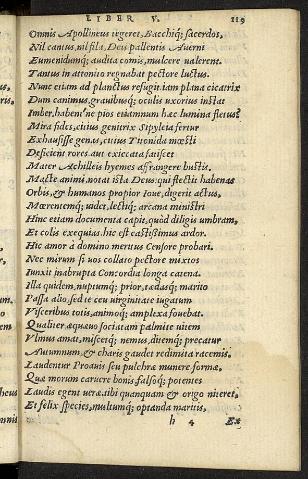 LIBER V. 119
Omnis Apollineus tegeret, Bacchiq; sacerdos,
Nil cantus, nil fila, Deis pallentis Auerni
Eumenidumq; audita comis, mulcere ualerent.
Tantus in attonito regnabat pectore luctus.
Nunc etiam ad planctus refugit iam plana cicatrix
Dum canimus, grauibusq; oculis uxorius instat
Imber. habent ne pios etiamnum hæc lumina fletus?
Mira fides, citius genitrix Sipyleia fertur
Exhausisse genas, citius Titonida mœsti
Deficient rores aut exiccata fatiscet
Mater Achilleis hyemes affrangere bustis.
Macte animi, notat ista Deus qui flectit habenas
Orbis, & humanos propior Ioue, digerit actus,
Mœrentemq; uidet, lectiq; arcana ministri
Hinc etiam documenta capit, quòd diligis umbram,
Et colis exequias. hic est castissimus ardor.
Hic amor à domino meritus Censore probari.
Nec mirum si uos collato pectore mixtos
Iunxit inabrupta Concordia longa catena.
Illa quidem, nuptumq; prior, tædasq; marito
Passa alio, sed te ceu uirginitate iugatum
Visceribus totis, animoq; amplexa fouebat.
Qualiter æquæuo sociatam palmite uitem
Vlmus amat, miscetq; nemus, diuemq; precatur
Autumnum, & charis gaudet redimita racemis.
Laudentur Proauis seu pulchræ munere formæ,
Quæ morum caruere bonis, falsoq; potentes
Laudis egent ueræ. tibi quanquam & origo niteret,
Et felix species, multumq; optanda maritis,
h 4 Ex